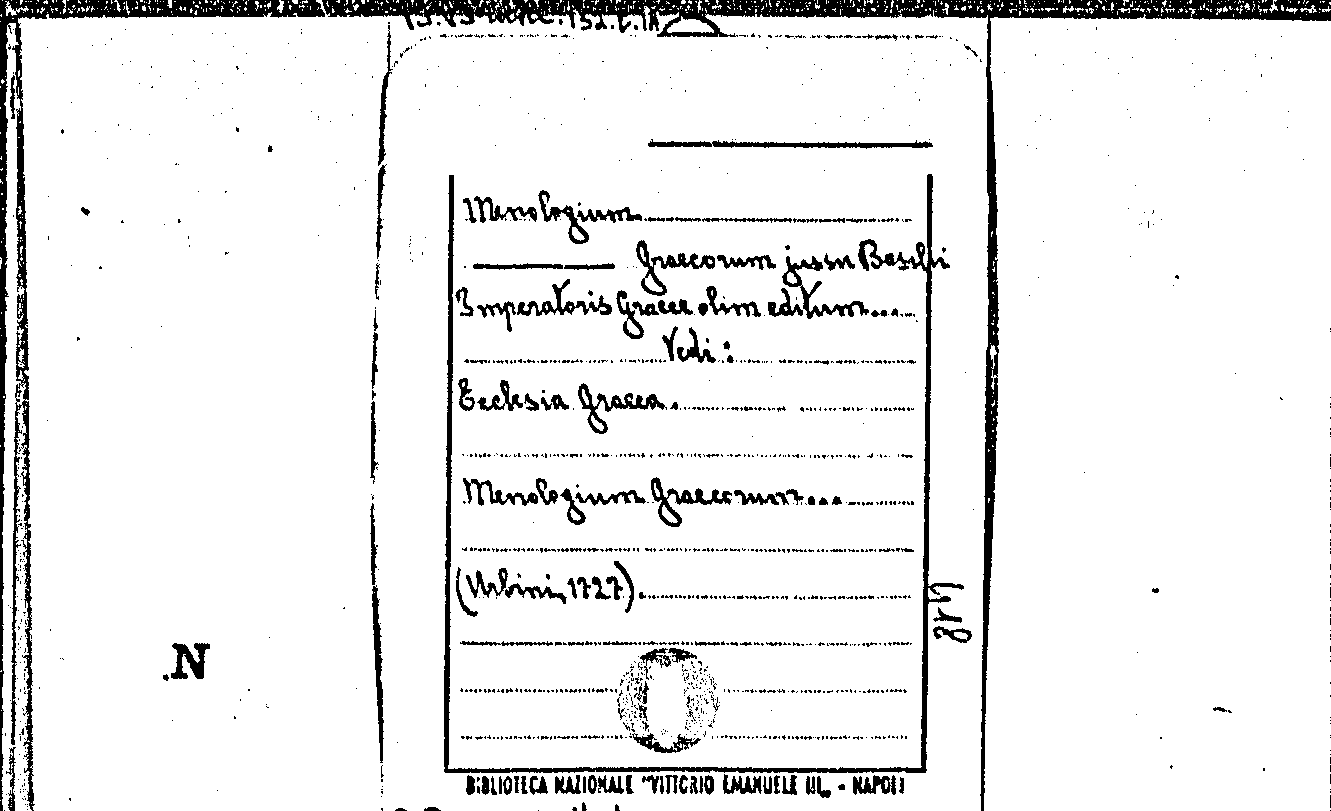 Menologium.
Graecorum jussu Basilii
Imperatoris Graece olim editum...
Vedi:
Ecclesia Graeca.
Menologium Graecorum...
(Urbini, 1727).
N
BIBLIOTECA NAZIONALE "VITTORIO EMANUELE III„ - NAPOLI